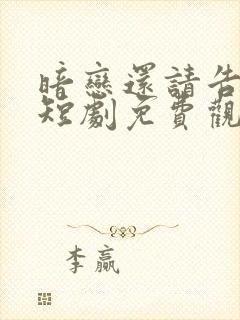 暗戀還請告
短劇免費觀
李贏